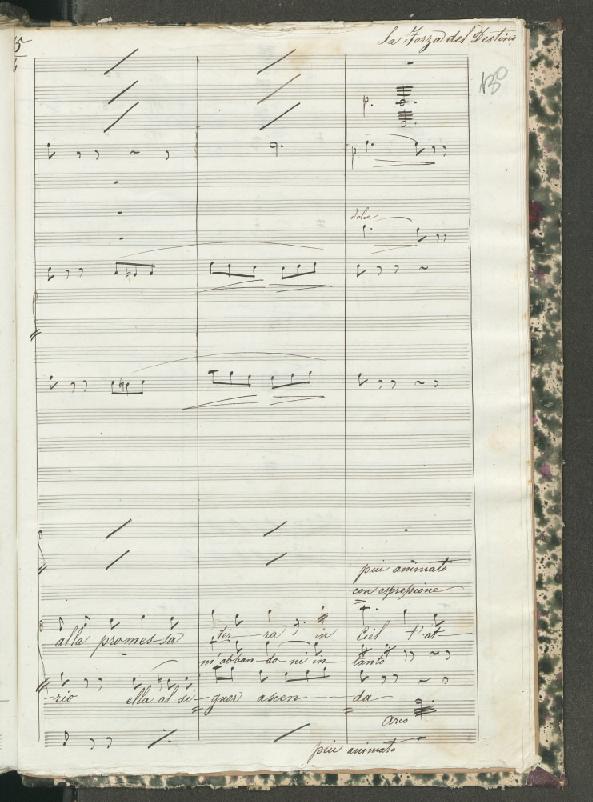 La Forza del Destino
130
p.
p
dolce
più animato
con espressione
alla promes-sa ter-ra; in Ciel t'at-
m'abban-do-ni in tanto
-rio ella al se-guer ascen-da
Arco
più animato